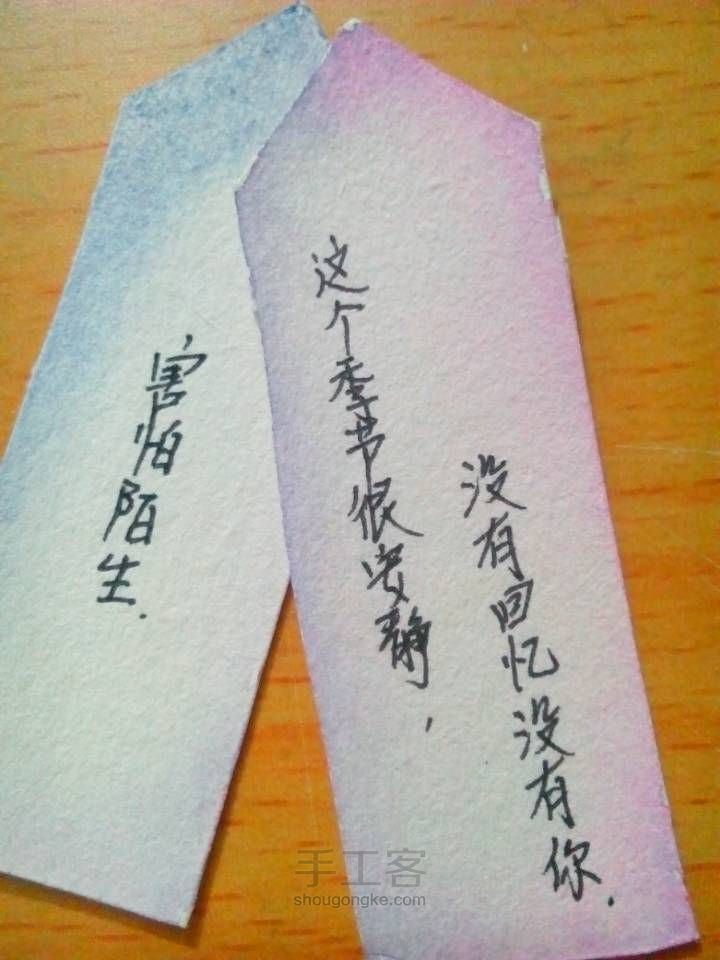 害怕陌生.
这个季节很安静,
没有回忆没有你.
手工客
shougongke.com